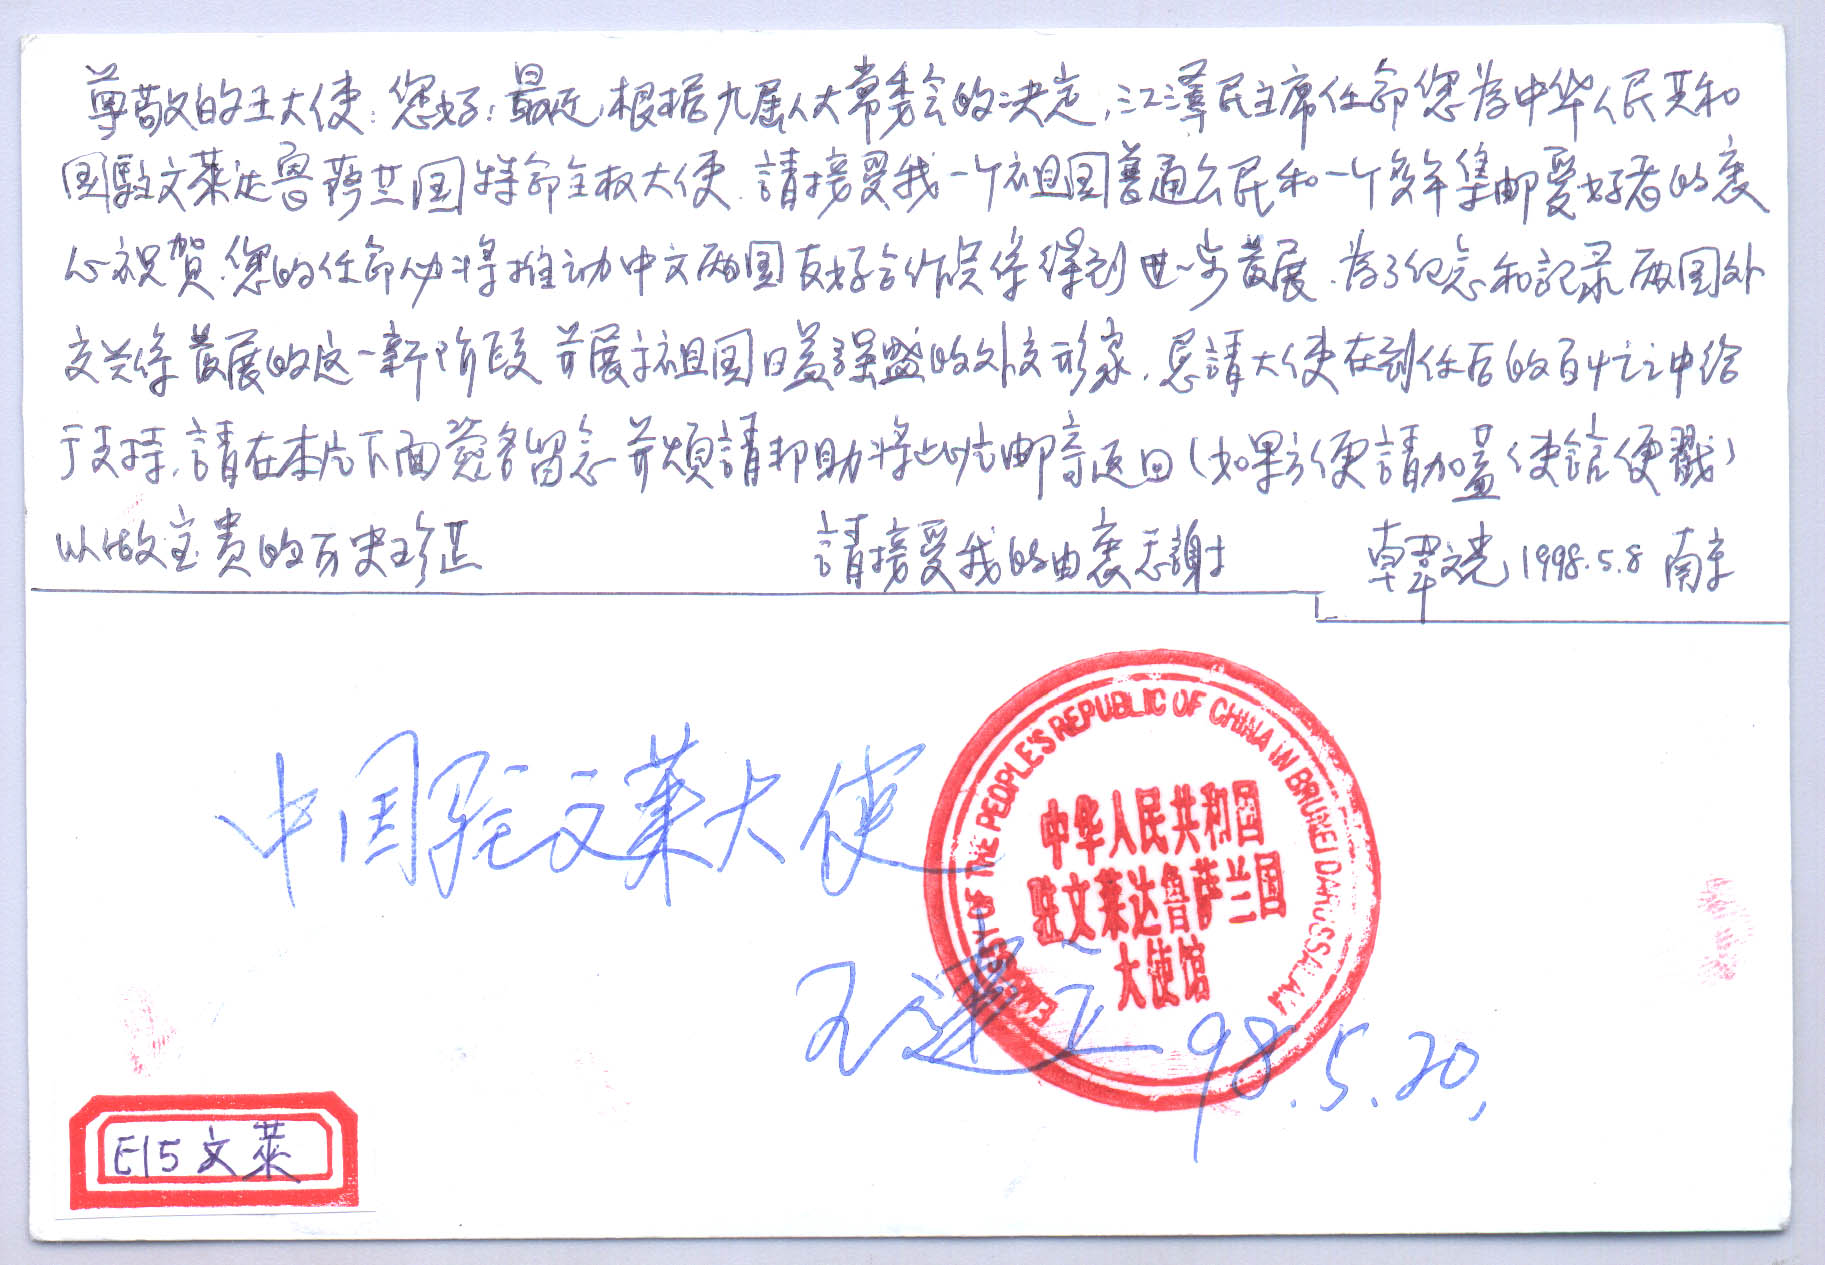 尊敬的王大使:您好!最近,根据九届人大常委会的决定,江澤民主席任命您为中华人民共和
国駐文莱达魯薩兰国特命全权大使.請接受我一个祖国普通公民和一个多年集邮爱好者的衷
心祝賀.您的任命必将推动中文两国友好合作関係得到进一步發展.为了纪念和記录两国外
交关係發展的这一新阶段并展示祖国日益强盛的外交形象,恳請大使在到任后的百忙之中给
于支持,請在本片下面簽名留念并煩請邦助将此片邮寄返回(如果方便請加蓋使館便戳)
以做宝贵的历史珍芷
請接受我的由衷感謝 韓文光 1998.5.8 南京
中国驻文莱大使
王建立 98.5.20,
EMBASSY OF THE PEOPLE'S REPUBLIC OF CHINA IN BRUNEI DARUSSALAM
中华人民共和国
驻文莱达鲁萨兰国
大使馆
E15文莱